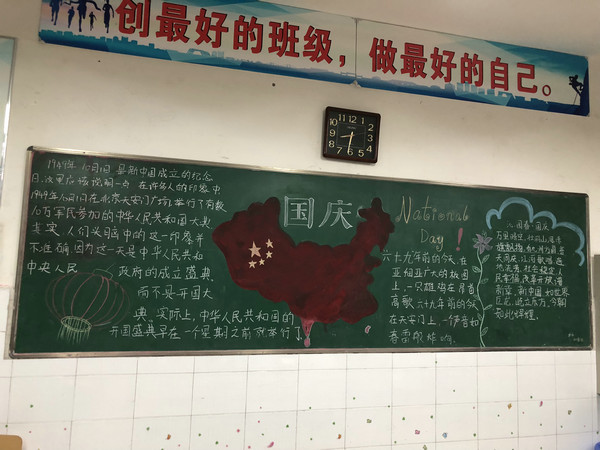 创最好的班级，做最好的自己。
国庆
National
Day!
1949年10月1日是新中国成立的纪念
日.这里应该说明一点 在许多人的印象中
1949年10月1日在北京天安门广场举行了有数
10万军民参加的中华人民共和国大典
其实 人们头脑中的这一印象并
不准确,因为这一天是中华人民共和
中央人民 政府的成立盛典
而不是开国大
典.实际上,中华人民共和国的
开国盛典早在一个星期之前就举行了
六十九年前的今天,在
亚细亚广大的版图
上,一只雄鸡在昂首
高歌 六十九年前的今天
在天安门上,一个声音如
春雷般炸响.
国庆
万里
天
地
人
新中国
巨龙,屹立东方,今朝